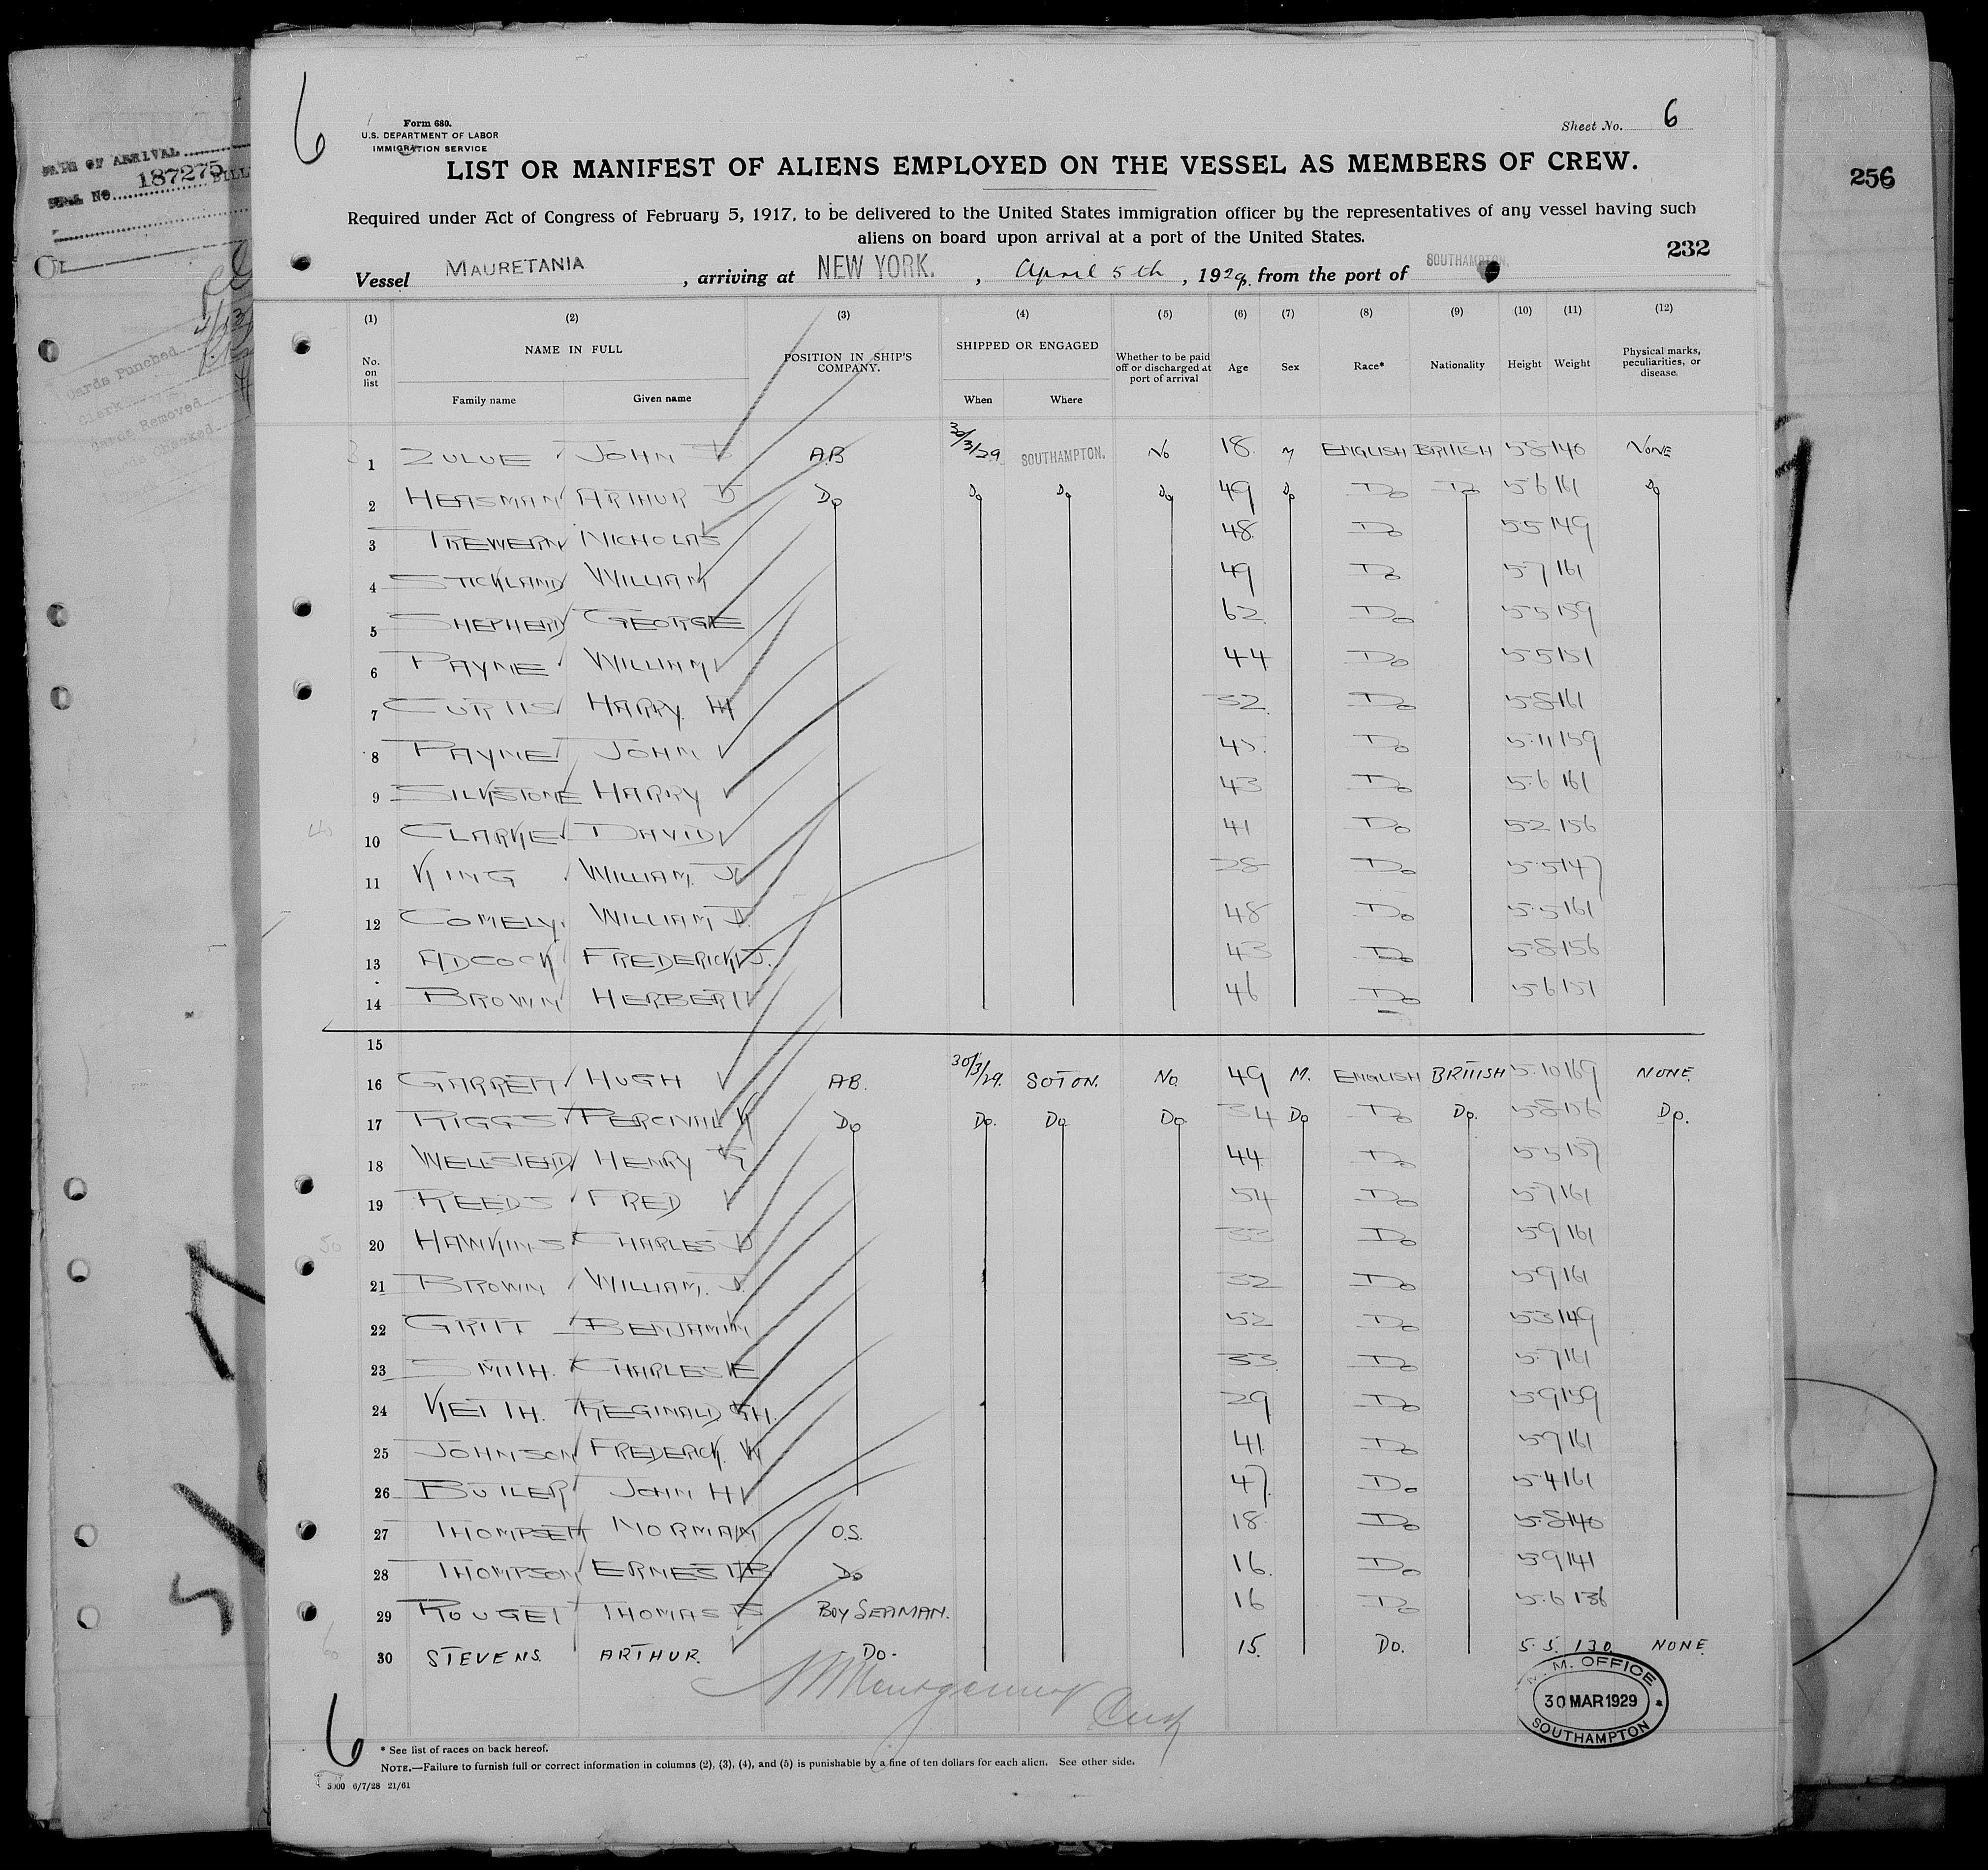 6
Form 680.
U.S. DEPARTMENT OF LABOR
IMMIGRATION SERVICE
Sheet No. 6
LIST OR MANIFEST OF ALIENS EMPLOYED ON THE VESSEL AS MEMBERS OF CREW.
Required under Act of Congress of February 5, 1917, to be delivered to the United States immigration officer by the representatives of any vessel having such
aliens on board upon arrival at a port of the United States.
232
Vessel MAURETANIA, arriving at NEW YORK., April 5th, 1929. from the port of SOUTHAMPTON.
DATE OF ARRIVAL
No. 187275
256
Cards Punched
Clerk
Cards Removed
Cards Checked
(1) (2) (3) (4) (5) (6) (7) (8) (9) (10) (11) (12)
No. on list NAME IN FULL POSITION IN SHIP'S COMPANY. SHIPPED OR ENGAGED Whether to be paid off or discharged at port of arrival Age Sex Race* Nationality Height Weight Physical marks, peculiarities, or disease.
Family name Given name When Where
1 ZULUE JOHN AB 30/3/29 SOUTHAMPTON. No 18 M ENGLISH BRITISH 5-8 140 NONE
2 HEASMAN ARTHUR J Do Do Do Do 49 Do Do Do 5-6 161 Do
3 TREWERN NICHOLAS 48 Do 5-5 149
4 STICKLAND WILLIAM 49 Do 5-7 161
5 SHEPHERD GEORGE 62 Do 5-5 159
6 PAYNE WILLIAM 44 Do 5-5 151
7 CURTIS HARRY H 32 Do 5-8 161
8 PAYNE JOHN 45 Do 5-11 159
9 SILKSTONE HARRY 43 Do 5-6 161
10 CLARKE DAVID 41 Do 5-2 156
11 KING WILLIAM J 28 Do 5-5 147
12 COMELY WILLIAM J. 48 Do 5-5 161
13 ADCOCK FREDERICK J. 43 Do 5-8 156
14 BROWN HERBERT 46 Do 5-6 151
15
16 GARRETT HUGH AB. 30/3/29. SOTON. No. 49 M. ENGLISH BRITISH 5-10 169 NONE.
17 RIGGS PERCIVAL Do Do. Do Do 34 Do Do Do. 5-8 156 Do.
18 WELLSTEAD HENRY G 44 Do 5-5 157
19 REEDS FRED 54 Do 5-7 161
20 HAWKINS CHARLES J 33 Do 5-9 161
21 BROWN WILLIAM. J. 32 Do 5-9 161
22 GRITT BENJAMIN 52 Do 5-3 149
23 SMITH. CHARLES E 33 Do 5-7 161
24 KEITH. REGINALD G H. 29 Do 5-9 159
25 JOHNSON FREDERICK. W 41 Do 5-7 161
26 BUTLER JOHN H 47. Do 5-4 161
27 THOMPSETT NORMAN O.S. 18 Do 5-8 140
28 THOMPSON ERNEST B Do 16. Do 5-9 141
29 ROUGET THOMAS BOY SEAMAN. 16 Do 5-6 136
30 STEVENS. ARTHUR. Do. 15. Do. 5.5. 130 NONE.
M. OFFICE
30 MAR 1929
SOUTHAMPTON
6
* See list of races on back hereof.
NOTE.—Failure to furnish full or correct information in columns (2), (3), (4), and (5) is punishable by a fine of ten dollars for each alien. See other side.
5000 6/7/28 21/61